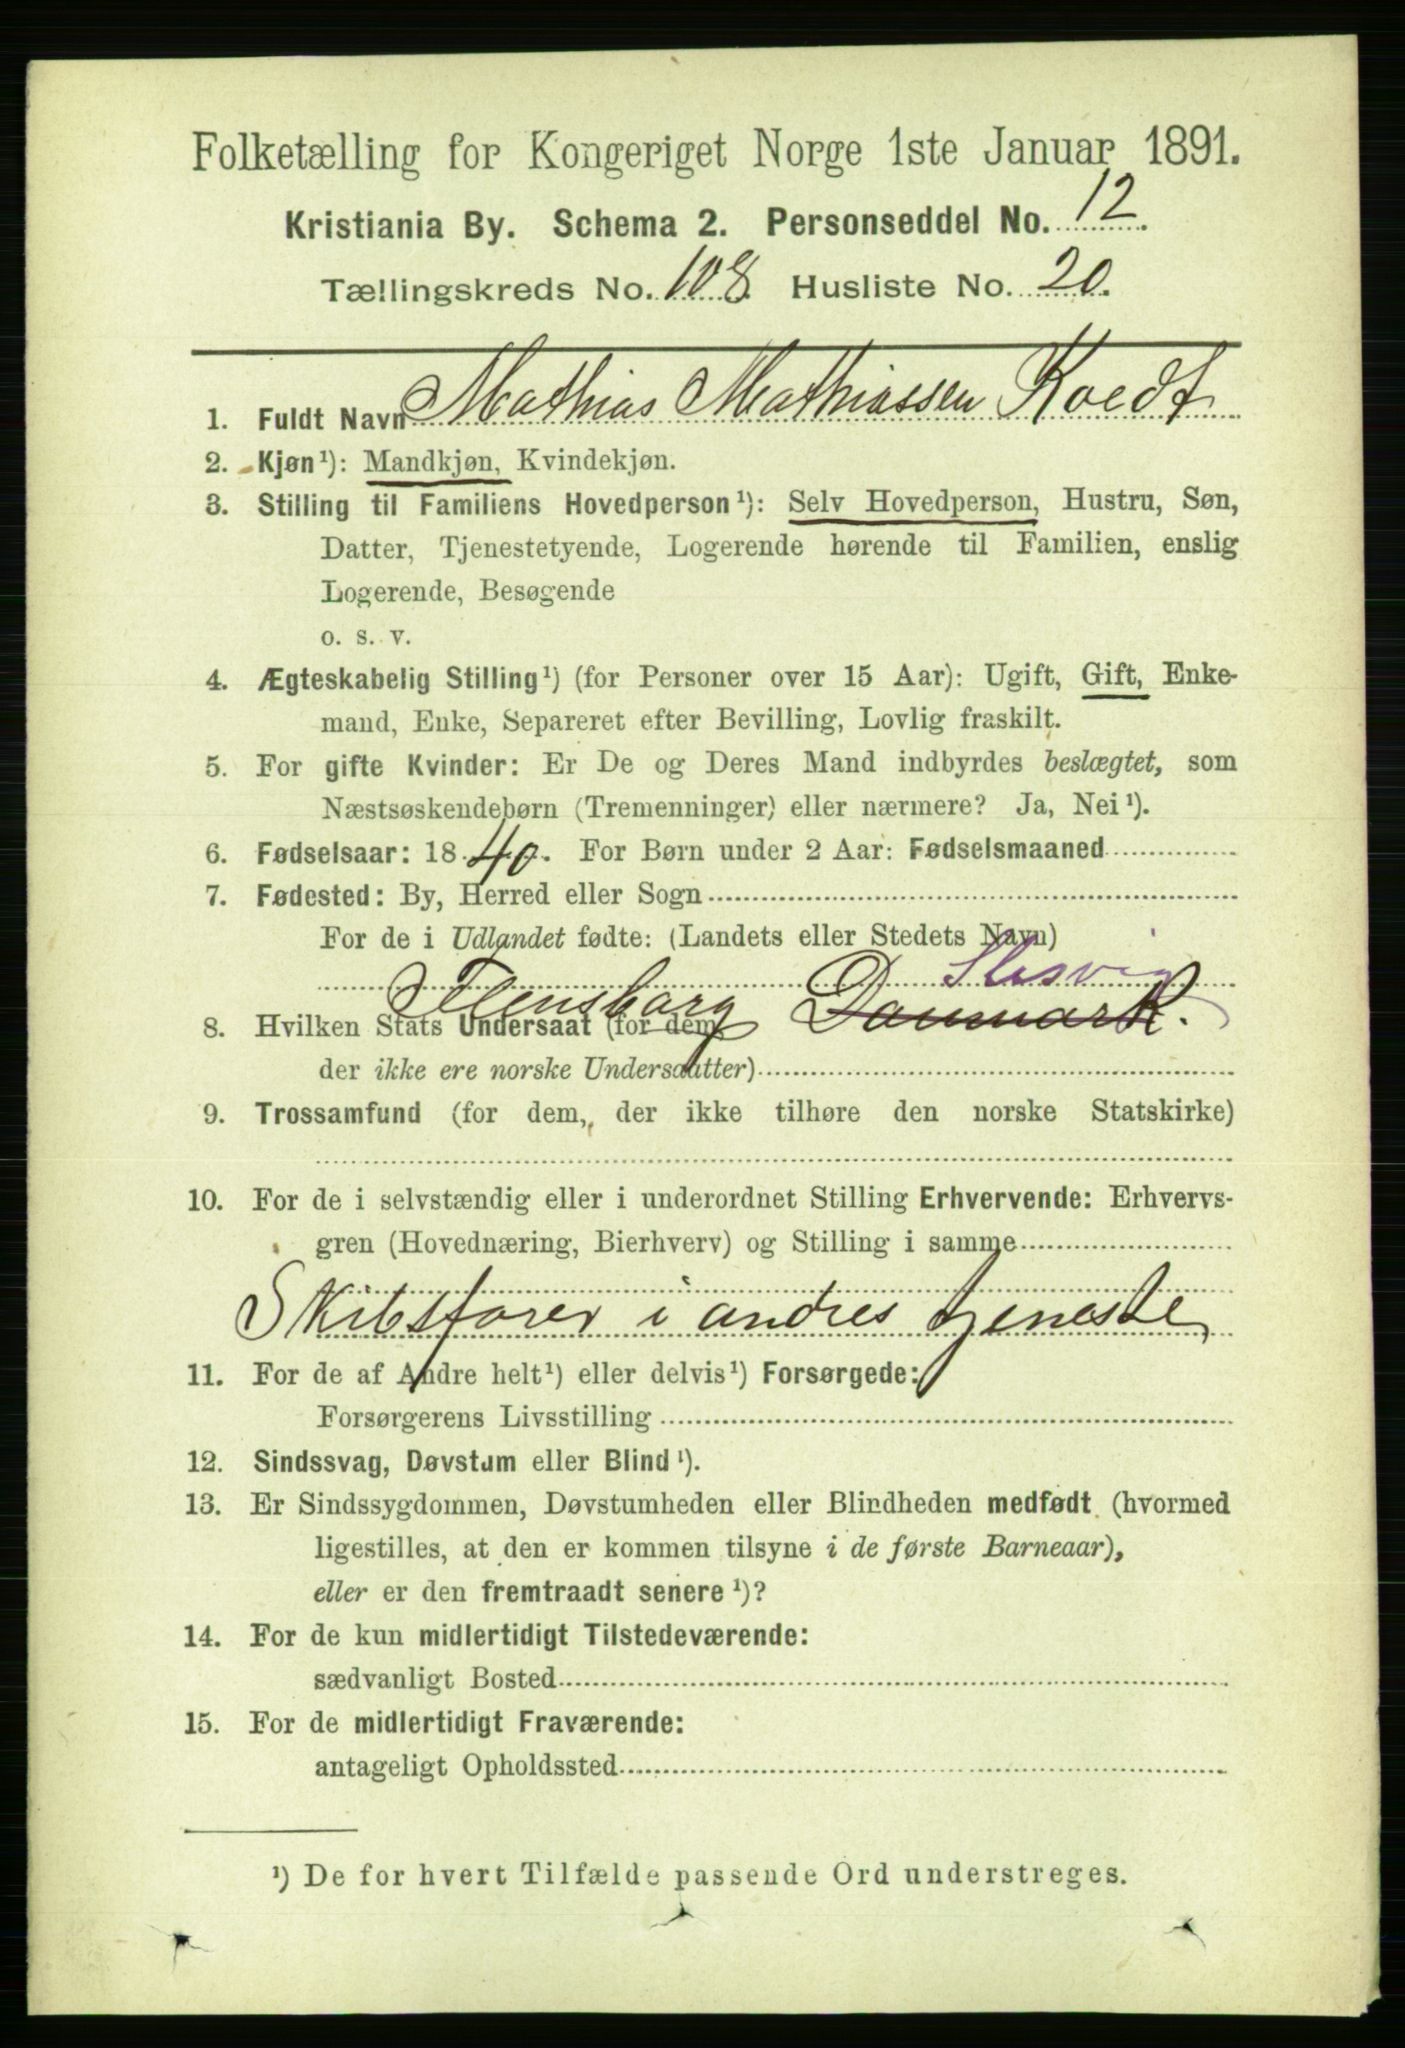 Folketælling for Kongeriget Norge 1ste Januar 1891.
Kristiania By. Schema 2. Personseddel No. 12.
Tællingskreds No. 108. Husliste No. 20.
1. Fuldt Navn Mathias Mathiassen Koedt
2. Kjøn¹): Mandkjøn, Kvindekjøn.
3. Stilling til Familiens Hovedperson¹): Selv Hovedperson, Hustru, Søn,
Datter, Tjenestetyende, Logerende hørende til Familien, enslig
Logerende, Besøgende
o. s. v.
4. Ægteskabelig Stilling¹) (for Personer over 15 Aar): Ugift, Gift, Enke-
mand, Enke, Separeret efter Bevilling, Lovlig fraskilt.
5. For gifte Kvinder: Er De og Deres Mand indbyrdes beslægtet, som
Næstsøskendebørn (Tremenninger) eller nærmere? Ja, Nei¹).
6. Fødselsaar: 1840. For Børn under 2 Aar: Fødselsmaaned
7. Fødested: By, Herred eller Sogn
For de i Udlandet fødte: (Landets eller Stedets Navn)
Slesvig
Flensborg Danmark.
8. Hvilken Stats Undersaat (for dem,
der ikke ere norske Undersaatter)
9. Trossamfund (for dem, der ikke tilhøre den norske Statskirke)
10. For de i selvstændig eller i underordnet Stilling Erhvervende: Erhvervs-
gren (Hovednæring, Bierhverv) og Stilling i samme
Skibsfører i andres tjeneste
11. For de af Andre helt¹) eller delvis¹) Forsørgede:
Forsørgerens Livsstilling
12. Sindssvag, Døvstum eller Blind¹).
13. Er Sindssygdommen, Døvstumheden eller Blindheden medfødt (hvormed
ligestilles, at den er kommen tilsyne i de første Barneaar),
eller er den fremtraadt senere¹)?
14. For de kun midlertidigt Tilstedeværende:
sædvanligt Bosted
15. For de midlertidigt Fraværende:
antageligt Opholdssted
¹) De for hvert Tilfælde passende Ord understreges.